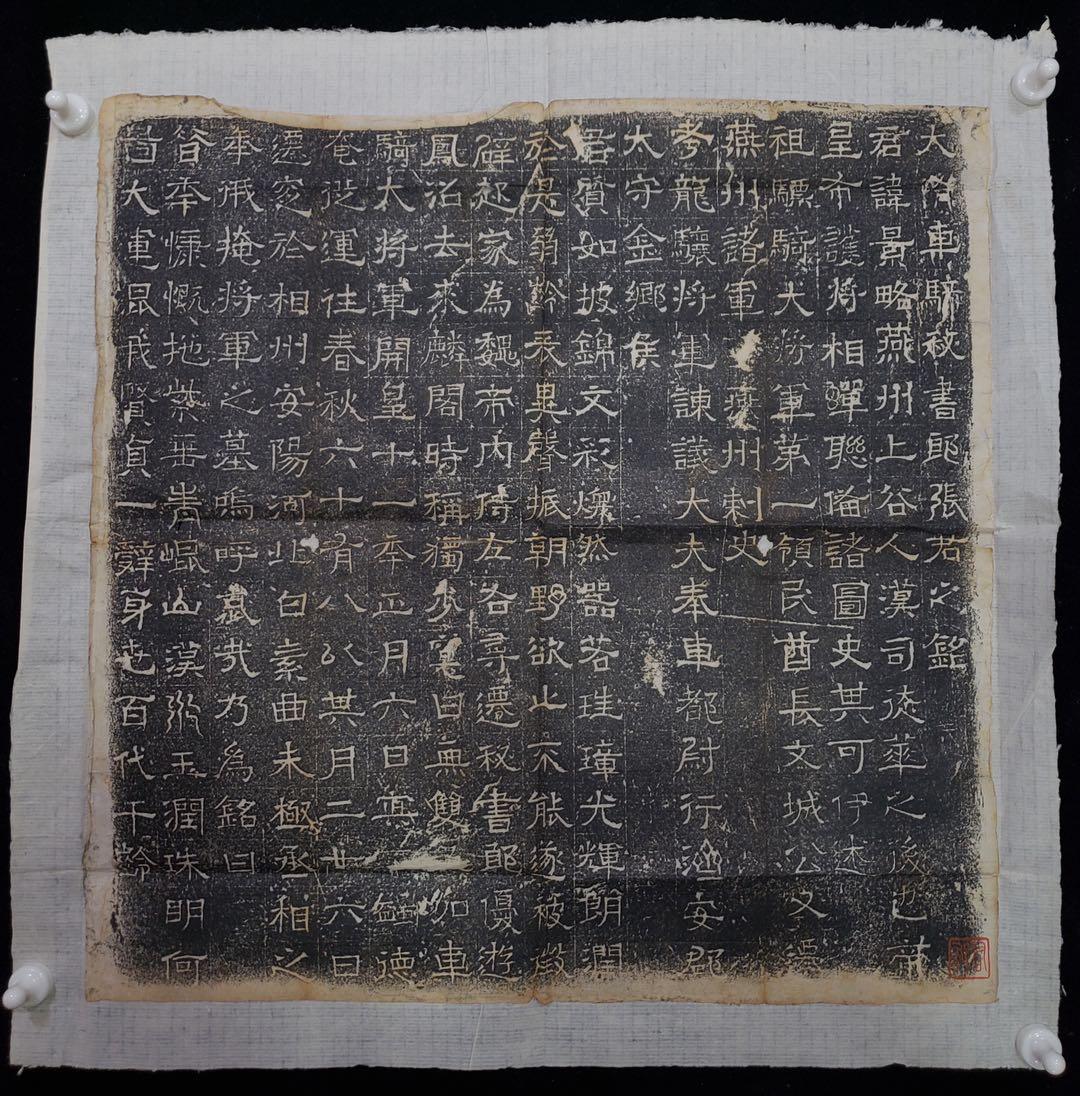 大隋車騎秘書郎張君之銘
君諱景略燕州上谷人漢司徒華之後也
皇布護將相蟬聯倫諸圖史其可伊述
祖驃騎大將軍第一領民酋長文城公又
燕州諸軍燕州刺史
考龍驤將軍諫議大夫奉車都尉行
大守金鄉侯
君資如披錦文彩爛然器若珪璋光輝朗潤
於是弱齡表異聲振朝野欲止不能遂被
辟起家為魏帝內侍左右尋遷秘書郎優遊
鳳沼去來麟閣時稱獨步世曰無雙加車
騎大將軍開皇十一年正月六日
奄從運往春秋六十有八以其月二廿六日
遷窆於相州安陽河北白素曲末極丞相之
年俄掩將軍之墓嗚呼哉乃為銘曰
昔奉慷慨地紫岳青崐山漢水玉潤珠明何
大運昆我賢貞一辭身世百代千齡